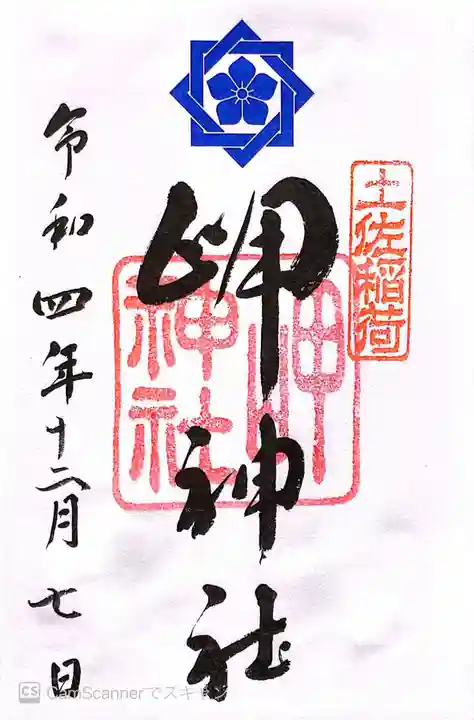 土佐稲荷
岬神社
岬神社
令和四年十二月七日
CS CamScannerでスキャン